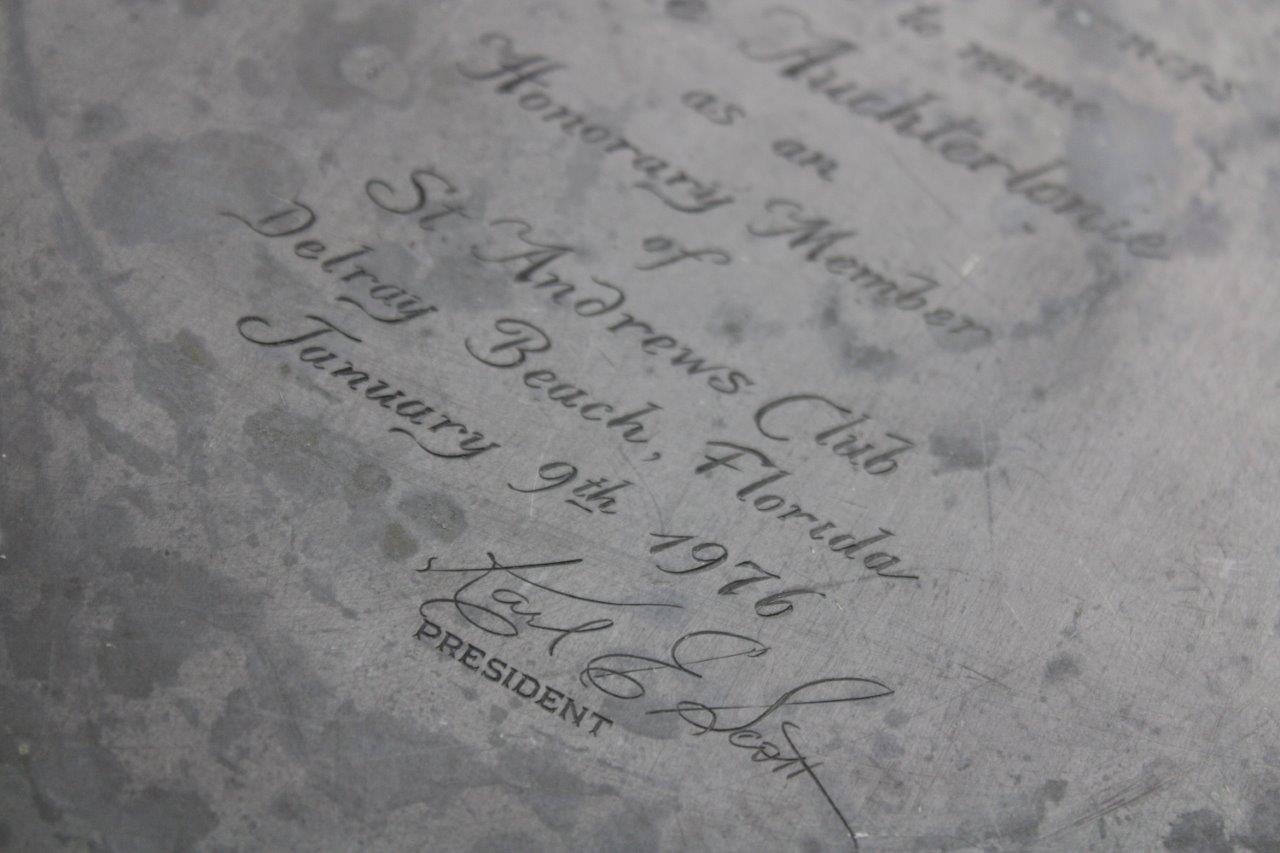 to name
Auchterlonie
as an
Honorary Member
of
St Andrews Club
Delray Beach, Florida
January 9th 1976
Karl E Scott
PRESIDENT